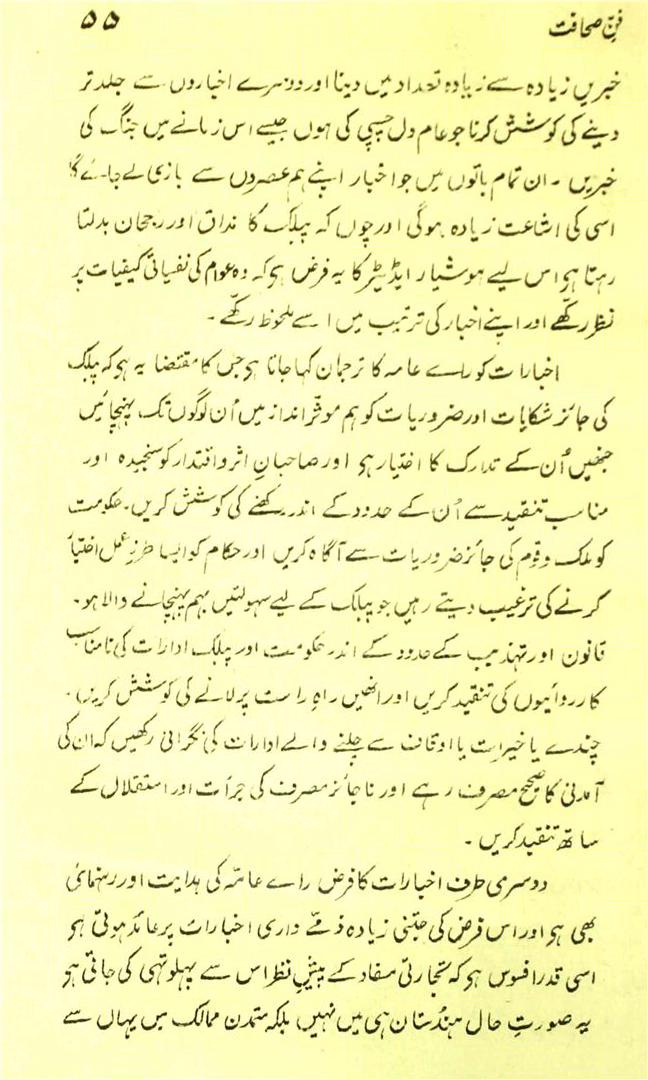 فنِ صحافت ۵۵
خبریں زیادہ سے زیادہ تعداد میں دینا اور دوسرے اخباروں سے جلد تر
دینے کی کوشش کرنا جو عام دل چسپی کی ہوں جیسے اس زمانے میں جنگ کی
خبریں ۔ ان تمام باتوں میں جو اخبار اپنے ہم عصروں سے بازی لے جائے گا
اسی کی اشاعت زیادہ ہوگی اور چوں کہ پبلک کا مذاق اور رجحان بدلتا
رہتا ہو اس لیے ہوشیار ایڈیٹر کا یہ فرض ہو کہ وہ عوام کی نفسیاتی کیفیات پر
نظر رکھے اور اپنے اخبار کی ترتیب میں اسے ملحوظ رکھے ۔
اخبارات کو رائے عامہ کا ترجمان کہا جاتا ہو جس کا مقتضا یہ ہو کہ پبلک
کی جائز شکایات اور ضروریات کو ہم موثر انداز میں اُن لوگوں تک پہنچائیں
جنھیں اُن کے تدارک کا اختیار ہو اور صاحبانِ اثر و اقتدار کو سنجیدہ اور
مناسب تنقید سے اُن کے حدود کے اندر رکھنے کی کوشش کریں۔ حکومت
کو ملک و قوم کی جائز ضروریات سے آگاہ کریں اور حکام کو ایسا طرزِ عمل اختیار
کرنے کی ترغیب دیتے رہیں جو پبلک کے لیے سہولتیں بہم پہنچانے والا ہو۔
قانون اور تہذیب کے حدود کے اندر حکومت اور پبلک ادارات کی نامناسب
کارروائیوں کی تنقید کریں اور انھیں راہِ راست پر لانے کی کوشش کریں۔
چندے یا خیرات یا اوقاف سے چلنے والے ادارات کی نگرانی رکھیں کہ ان کی
آمدنی کا صحیح مصرف رہے اور ناجائز مصرف کی جرأت اور استقلال کے
ساتھ تنقید کریں ۔
دوسری طرف اخبارات کا فرض رائے عامّہ کی ہدایت اور رہنمائی
بھی ہو اور اس فرض کی جتنی زیادہ ذمّے داری اخبارات پر عائد ہوتی ہو
اسی قدر افسوس ہو کہ تجارتی مفاد کے پیشِ نظر اس سے پہلو تہی کی جاتی ہو
یہ صورتِ حال ہندستان ہی میں نہیں بلکہ متمدن ممالک میں یہاں سے